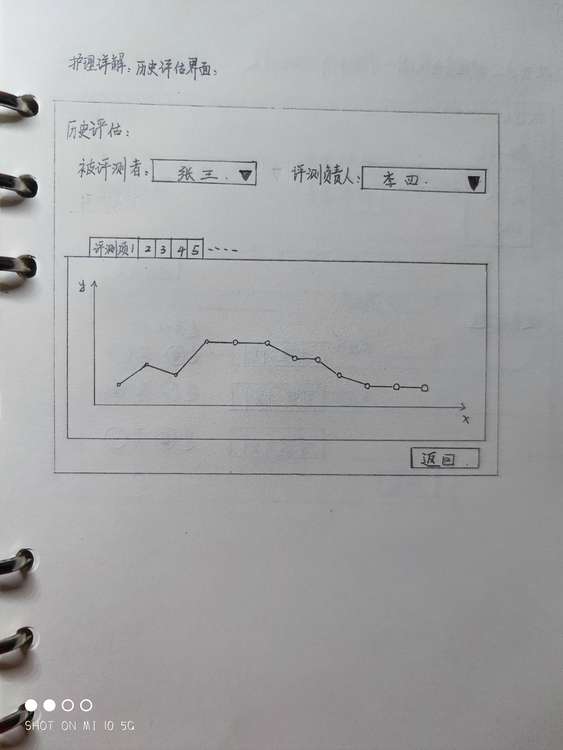 护理详解：历史评估界面：
历史评估：
被评测者： 张三. 评测负责人： 李四.
评测项1 2 3 4 5 ----
y
x
返回.
SHOT ON MI 10 5G